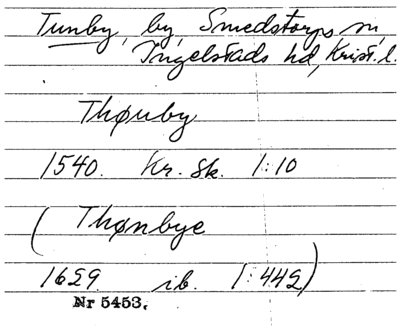 Tunby, by, Smedstorps sn,
Ingelstads hd, Krist. l.
Thønby
1540. Kr. Sk. 1:10
(Thønbye
1629 ib. 1:442)
Nr 5453.